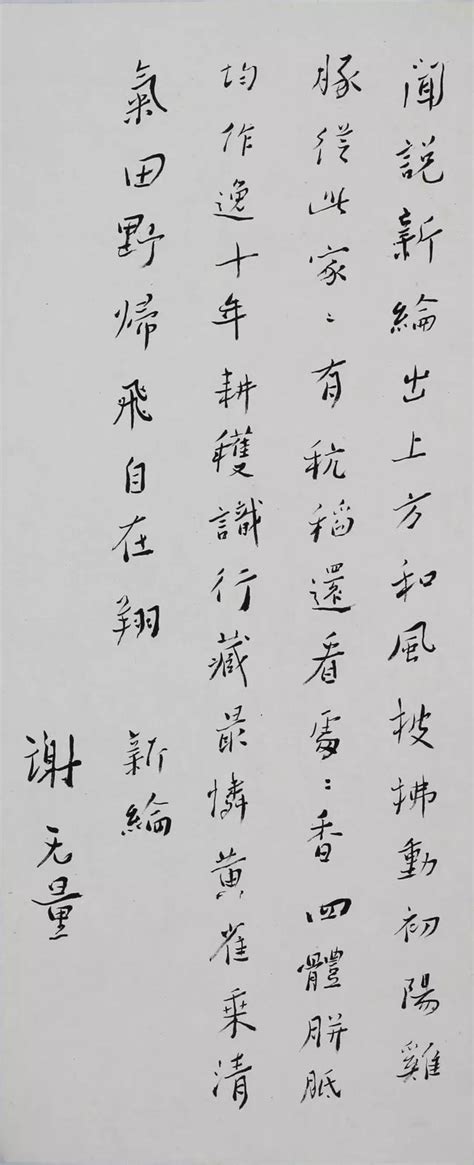 聞説新綸出上方和風披拂動初陽雞
豚從此家〻有秔稻還看處〻香四體胼胝
均作逸十年耕穫識行藏最憐黃雀乗清
氣田野歸飛自在翔 新綸
謝无量